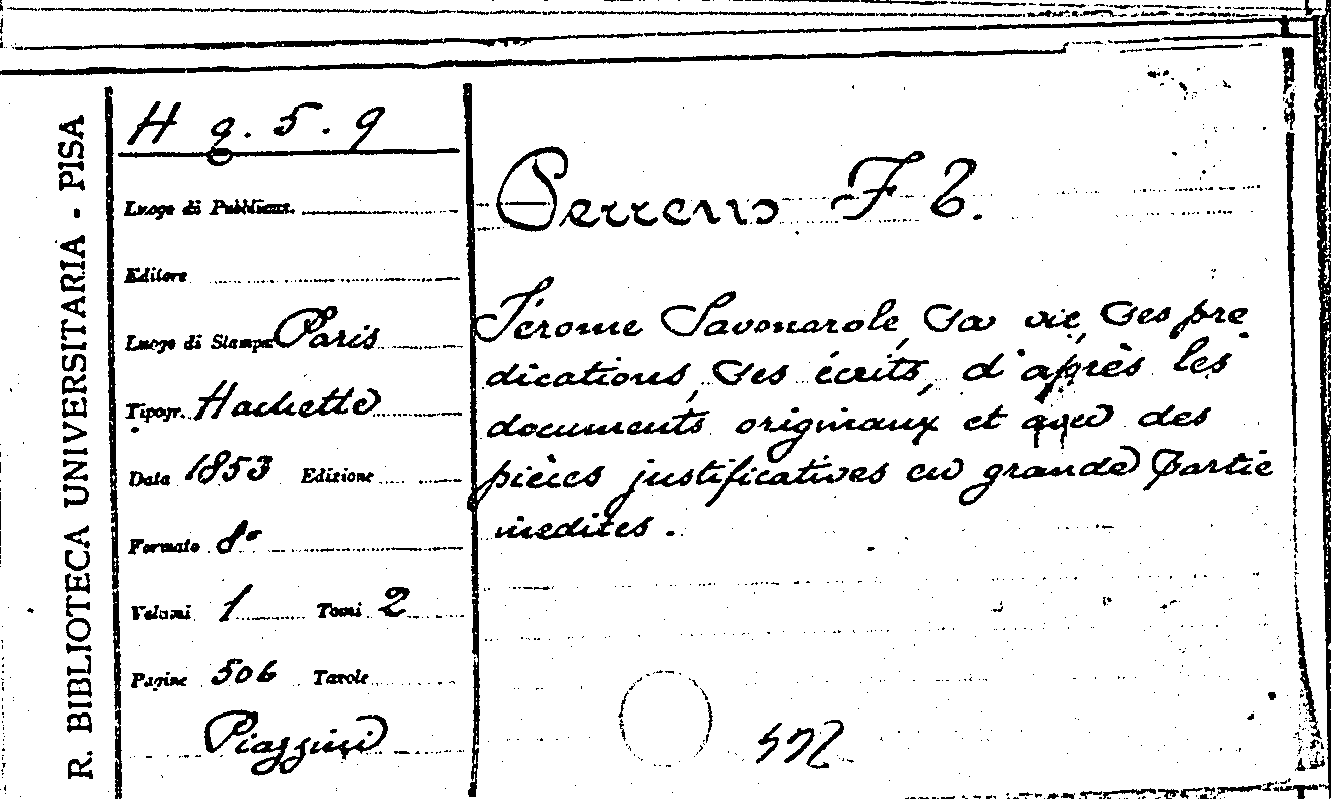 R. BIBLIOTECA UNIVERSITARIA - PISA
H q. 5. 9
Luogo di Pubblicaz.
Editore
Luogo di Stampa Paris
Tipogr. Hachette
Data 1853 Edizione
Formato 8°
Volumi 1 Tomi 2
Pagine 506 Tavole
Piaggini
Perrens F T.
Jérome Savonarole, sa vie, ses pre
dications, ses écrits, d'après les
documents originaux et avec des
pièces justificatives en grande partie
inedites.